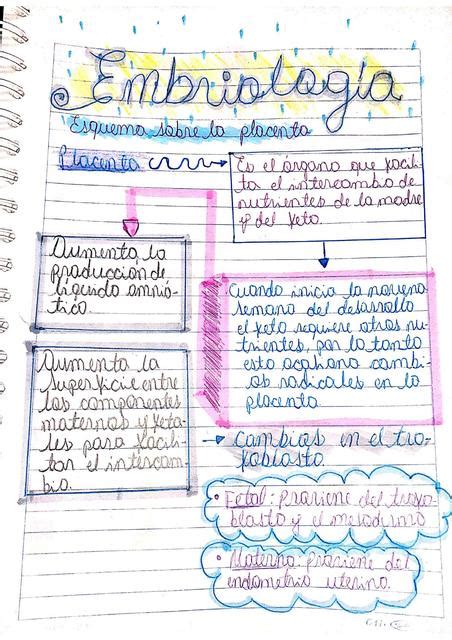 Embriología
Esquema sobre la placenta
Placenta
Es el órgano que facili-
ta el intercambio de
nutrientes de la madre
y del feto.
Aumenta la
producción de
líquido amnió-
tico.
Cuando inicia la novena
semana del desarrollo
el feto requiere otros nu-
trientes, por lo tanto
esto acasiana cambi-
os radicales en la
placenta
Aumenta la
superficie entre
los componentes
maternos y feta-
les para facili-
tar el intercam-
bio.
→ cambios en el tro-
foblasto.
• Fetal: proviene del trofo-
blasto y el mesodermo
• Materna: proviene del
endometrio uterino.